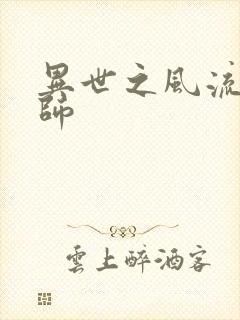 異世之風流
師
雲上醉酒客